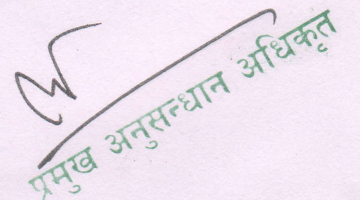 प्रमुख अनुसन्धान अधिकृत